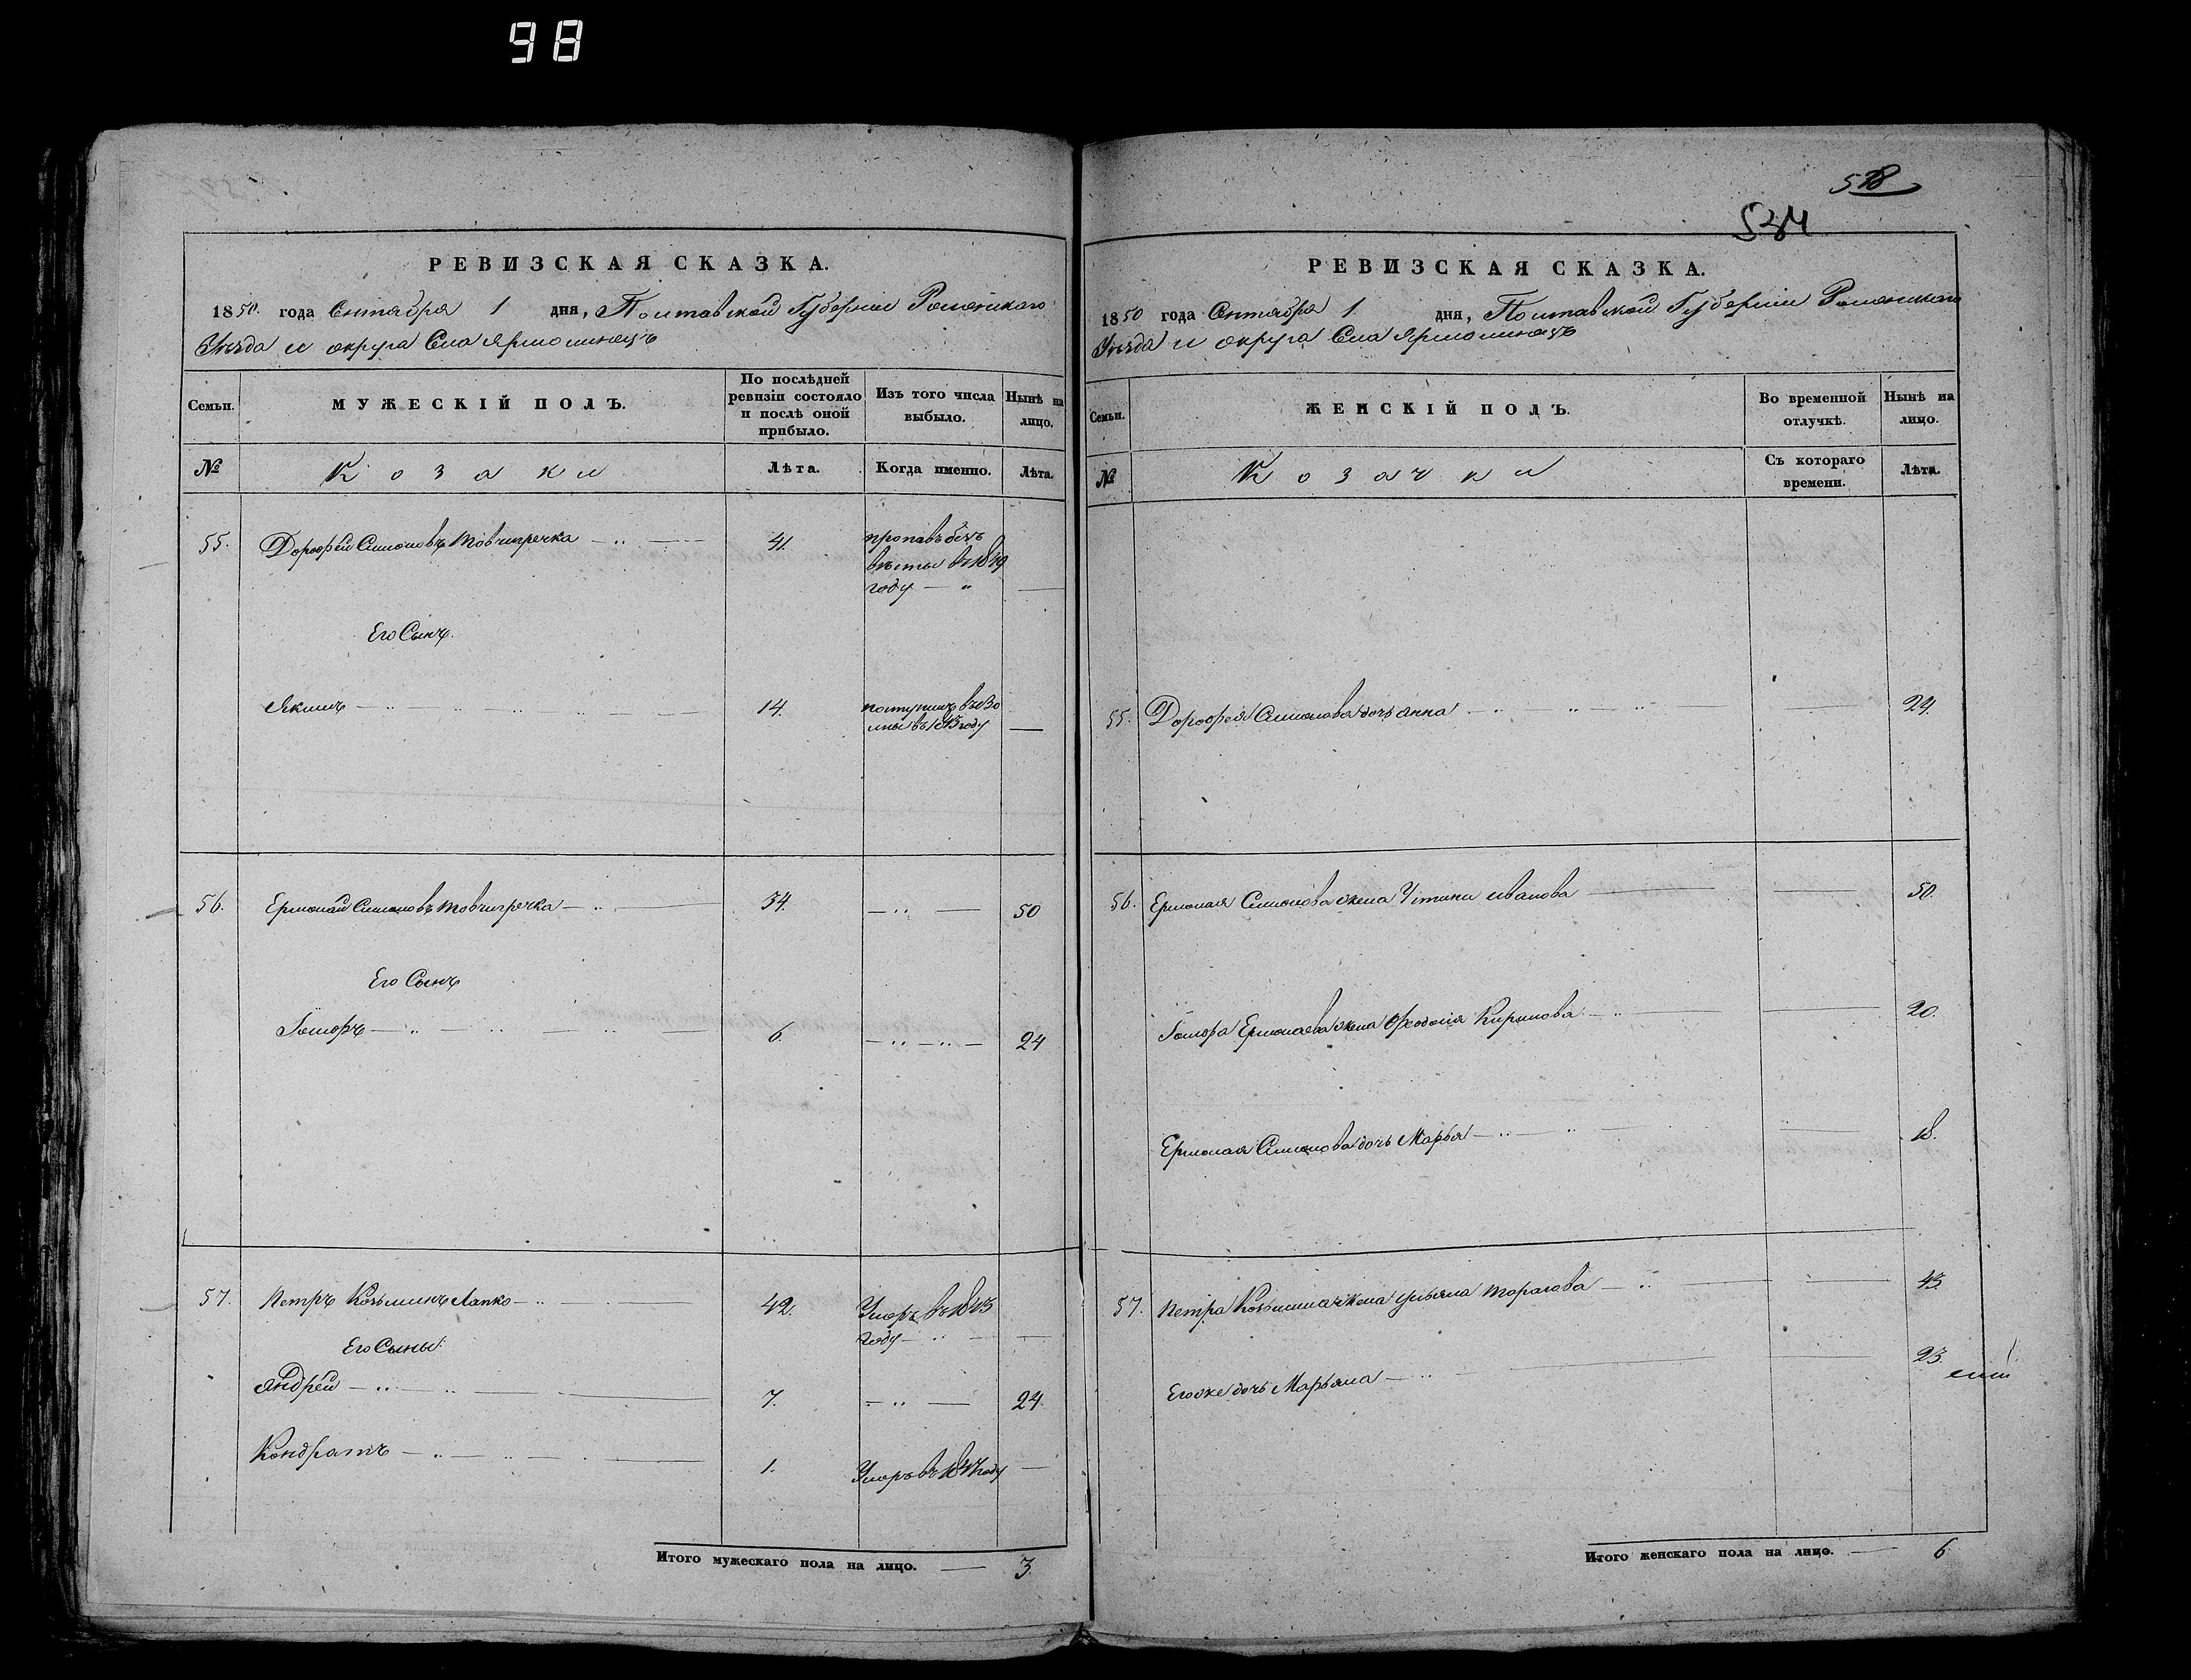 98
РЕВИЗСКАЯ СКАЗКА.
1850. года Сентября 1 дня, Полтавской Губернии Роменскаго
Уезда и округа Села Ярмолинецъ
Семьи.
МУЖЕСКІЙ ПОЛЪ.
По послѣдней ревизіи состояло и послѣ оной прибыло.
Изъ того числа выбыло.
Нынѣ на лицо.
№
Козаки
Лѣта.
Когда именно.
Лѣта.
55. Дорофей Симоновъ Товчигречка 41. пропавъ безъ
вѣсты въ 1849
году
Его Сынъ.
Якимъ 14.
въ 1843 году
56. Ермолай Симоновъ Товчигречка 34. 50
Его Сынъ
6. 24
57. Петръ Козьминъ Лапко 42. Умеръ въ 1845
году
Его Сыны:
Андрей 7. 24.
Кондратъ 1. Умеръ въ 1847 году
Итого мужескаго пола на лицо. 3.
518
РЕВИЗСКАЯ СКАЗКА.
1850 года Сентября 1 дня, Полтавской Губерніи Роменскаго
Уезда и округа Села Ярмолинецъ
Семьи.
ЖЕНСКІЙ ПОЛЪ.
Во временной отлучкѣ.
Нынѣ на лицо.
№
Козачки
Съ котораго времени.
Лѣта.
55. Дорофея Симонова дочь Анна 29.
56. Ермолая Симонова жена Устинья Иванова 50.
Ермолаева жена Феодосія Кирилова 20.
Ермолая Симонова дочь Марья 18.
57. Петра Козьмина жена Ульяна Тарасова 43.
Его же дочь Марьяна 23.
Итого женскаго пола на лицо. 6